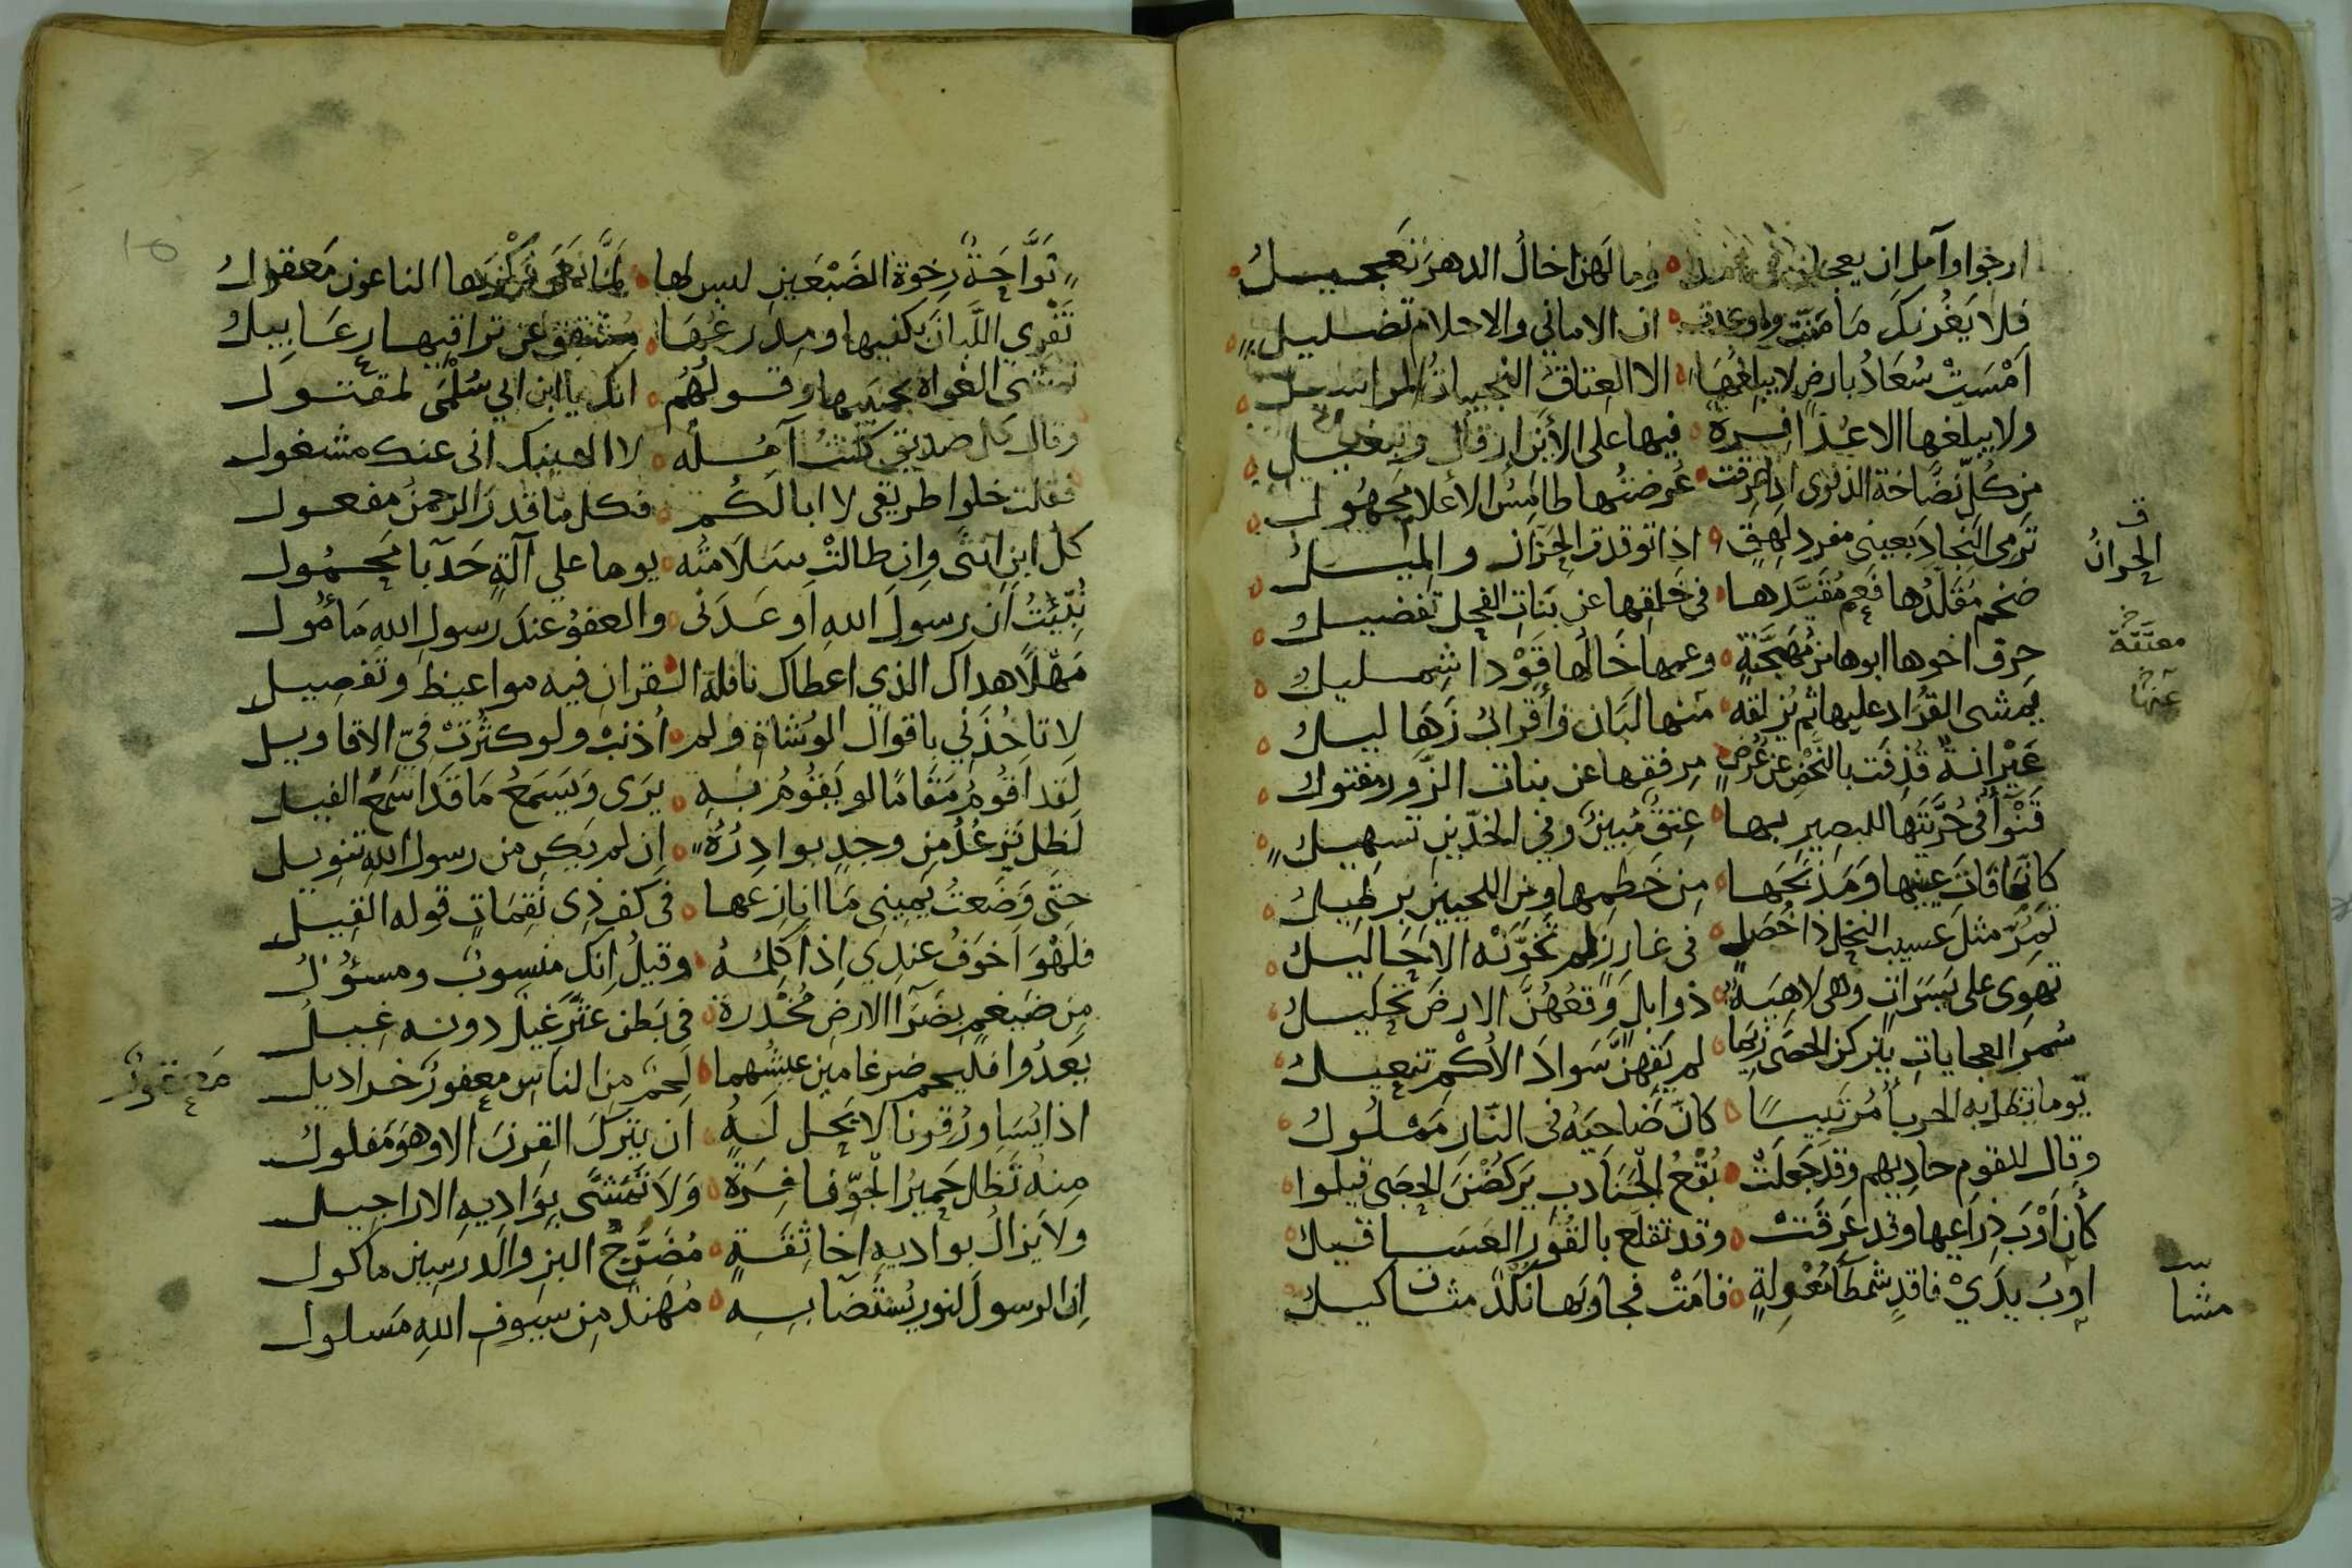 ارجوا وآمل ان يعجلن في ۰ وما لهن اخال الدهر تعجيل
فلا يغرنك ما منت وما وعدت ۰ ان الاماني والاحلام تضليل
امست سعاد بارض لا يبلغها ۰ الا العتاق النجيبات المراسيل
ولا يبلغها الا عذافرة ۰ فيها على الأين ارقال وتبغيل
من كل نضاخة الذفرى اذا عرقت ۰ عرضتها طامس الأعلام مجهول
ترمي النجاد بعيني مفرد لهق ۰ اذا توقدت الحزان والميل
ضخم مقلدها فعم مقيدها ۰ في خلقها عن بنات الفحل تفضيل
حرف اخوها ابوها من مهجنة ۰ وعمها خالها قودا شمليل
يمشى القراد عليها ثم يزلقه ۰ منها لبان وأقراب زهاليل
عيرانة قذفت بالنحض عن عرض ۰ مرفقها عن بنات الزور مفتول
قنوآ في حرتيها للبصير بها ۰ عتق مبين وفي الخدين تسهيل
كانما فات عينيها ومذبحها ۰ من خطمها ومن اللحيين برطيل
تمر مثل عسيب النخل ذا خصل ۰ في غارز لم تخونه الاحاليل
تهوى على يسرات وهي لاهية ۰ ذوابل وقعهن الارض تحليل
سمر العجايات يتركن الحصى زيما ۰ لم يقهن سواد الأكم تنعيل
يوما يظل به الحربا مرتبيسا ۰ كان ضاحيه في النار مملول
وقال للقوم حاديهم وقد جعلت ۰ بقع الجنادب يركضن الحصى قيلوا
كأن أوب ذراعيها وقد عرقت ۰ وقد تقلع بالقور العساقيل
اوب يدي فاقد شمطا معولة ۰ قامت فجاوبها نكد مثاكيل
الحزان
معتقة
عنها
مثا
نواحة رخوة الضبعين ليس لها ۰ لما نعى بكرها الناعون معقول
تفري اللبان بكفيها ومدرعها ۰ مشقق عن تراقيها رعابيل
تمشى الغواة بجنبيها وقولهم ۰ انك يا ابن ابي سلمى لمقتول
وقال كل صديق كنت آمله ۰ لا الهينك انى عنك مشغول
فقلت خلوا طريقي لا ابا لكم ۰ فكل ما قدر الرحمن مفعول
كل ابن انثى وان طالت سلامته ۰ يوما على آلة حدبا محمول
نبئت أن رسول الله اوعدني ۰ والعفو عند رسول الله مأمول
مهلا هداك الذي اعطاك نافلة الـ ۰ ـقران فيه مواعيظ وتفصيل
لا تاخذني باقوال الوشاة ولم ۰ أذنب ولو كثرت في الاقاويل
لقد اقوم مقاما لو يقوم به ۰ يرى ويسمع ما قد اسمع الفيل
لظل ترعد من وجد بوادره ۰ ان لم يكن من رسول الله تنويل
حتى وضعت يميني ما انازعها ۰ في كف ذي نقمات قوله القيل
فلهو اخوف عندي اذ اكلمه ۰ وقيل انك منسوب ومسؤول
من ضيغم بضرآ الارض مخدرة ۰ في بطن عثر غيل دونه غيل
يغدوا فليحم ضرغامين عيشهما ۰ لحم من الناس معفور خراديل
اذا يساور قرنا لا يحل له ۰ ان يترك القرن الا وهو مفلول
منه تظل حمير الجو ضافرة ۰ ولا تمشى بواديه الاراجيل
ولا يزال بواديه اخا ثقة ۰ مضرج البز والدرسين ماكول
ان الرسول لنور يستضا به ۰ مهند من سيوف الله مسلول
معفور